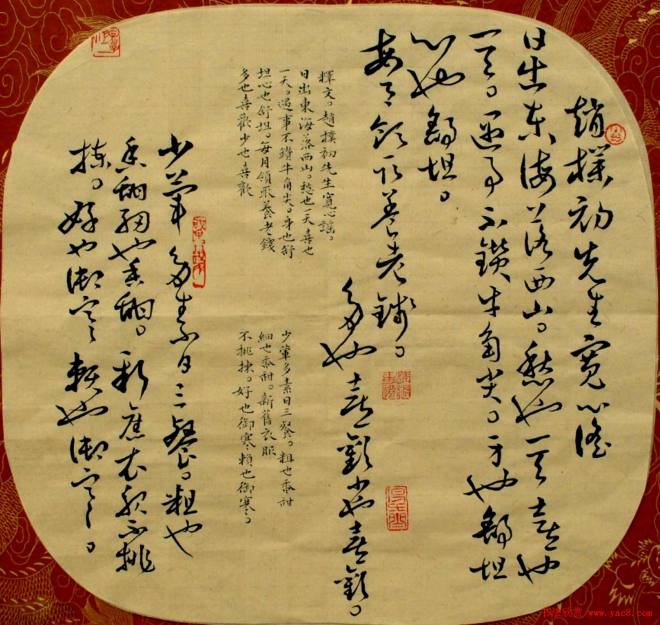 趙樸初先生寬心謠
日出东海落西山。愁也一天喜也
一天。遇事不鑽牛角尖。身也舒坦
心也舒坦。
每月领取養老錢。
多也喜歡少也喜歡。
釋文。趙樸初先生寬心謠。
日出東海落西山。愁也一天喜也
一天。遇事不鑽牛角尖。身也舒
坦心也舒坦。每月領取養老錢
多也喜歡少也喜歡
少葷多素日三餐。粗也
香甜細也香甜。新舊衣服不挑
揀。好也御寒賴也御寒。
少葷多素日三餐。粗也香甜
細也香甜。新舊衣服
不挑揀。好也御寒賴也御寒。
www.yac8.com